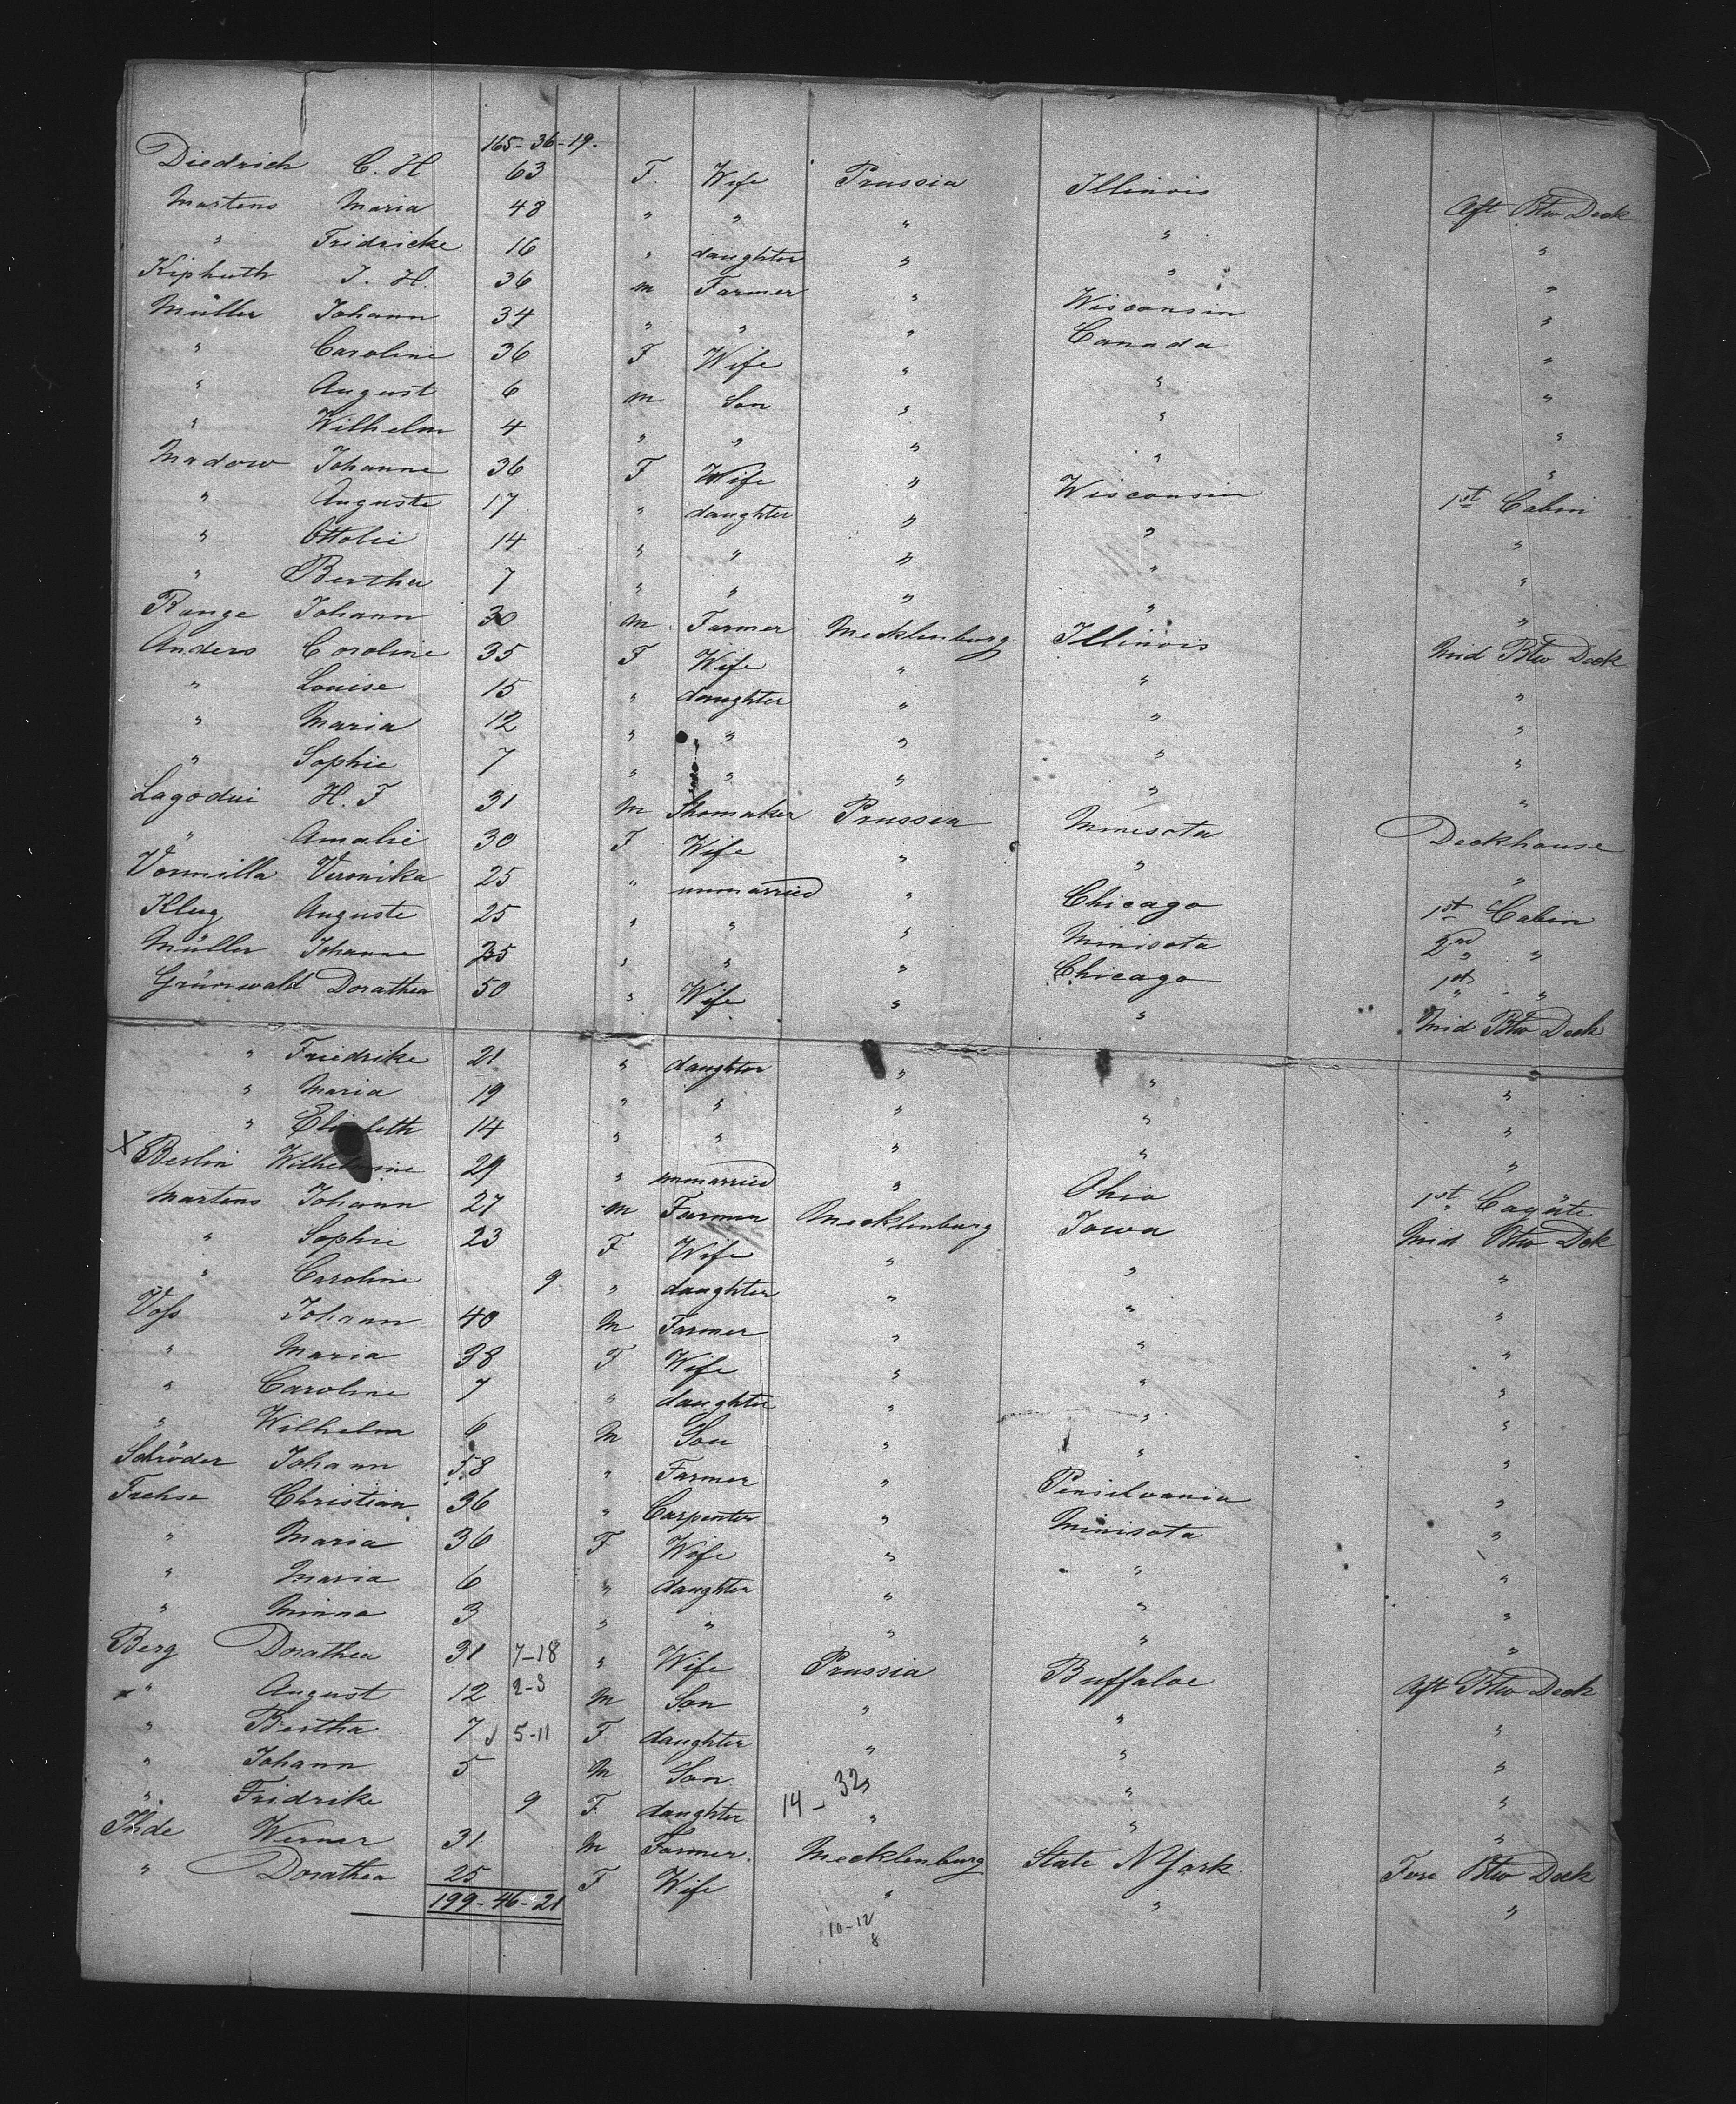 165-36-19.
Diedrich C. H 63 F. Wife Prussia Illinois Aft Btw Deck
Martens Maria 48 " " " " "
" Fridricke 16 " daughter " " "
Kiphuth J. H. 36 m Farmer " Wisconsin "
Müller Johann 34 " " " Canada "
" Caroline 36 F Wife " " "
" August 6 m Son " " "
" Wilhelm 4 " " " " "
Madow Johanne 36 F Wife " Wisconsin 1st Cabin
" Auguste 17 " daughter " " "
" Ottolie 14 " " " " "
" Bertha 7 " " " " "
Range Johann 30 m Farmer Mecklenburg Illinois Mid Btw Deck
Anders Caroline 35 F Wife " " "
" Louise 15 " daughter " " "
" Maria 12 " " " " "
" Sophie 7 " " " " "
Lagodni H. F 31 m Shomaker Prussia Minesota Deckhouse
" Amalie 30 F Wife " " "
Vormilla Veronika 25 " unmarried " Chicago 1st Cabin
Klug Auguste 25 " " " Minisota 2nd " "
Müller Johanne 25 " " " Chicago 1st " "
Grünwald Dorathea 50 " Wife " " Mid Btw Deck
" Friedrike 21 " daughter " " "
" Maria 19 " " " " "
" Elisabeth 14 " " " " "
X Berlin Wilhelmine 29 " unmarried " Ohio 1st Cayüte
Martens Johann 27 m Farmer Mecklenburg Iowa Mid Btw Dek
" Sophie 23 F Wife " " "
" Caroline 9 " daughter " " "
Voss Johann 40 m Farmer " " "
" Maria 38 F Wife " " "
" Caroline 7 " daughter " " "
" Wilhelm 6 m Son " " "
Schröder Johann 58 " Farmer " Pensilvania "
Fuchse Christian 36 " Carpenter " Minisota "
" Maria 36 F Wife " " "
" Maria 6 " daughter " " "
" Minna 3 " " " " "
Berg Dorathea 31 7-18 " Wife Prussia Buffaloe Aft Btw Deck
" August 12 2-3 m Son " " "
" Bertha 7 5-11 F daughter " " "
" Johann 5 m Son " " "
14-32
" Fridrike 9 F daughter " " "
Ihde Werner 31 m Farmer. Mecklenburg State NYork Fore Btw Deck
" Dorathea 25 F Wife " " "
199-46-21
10-12
8